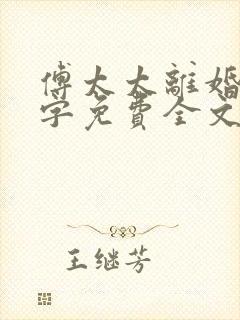 傅太太離婚
字免費全文
王继芳